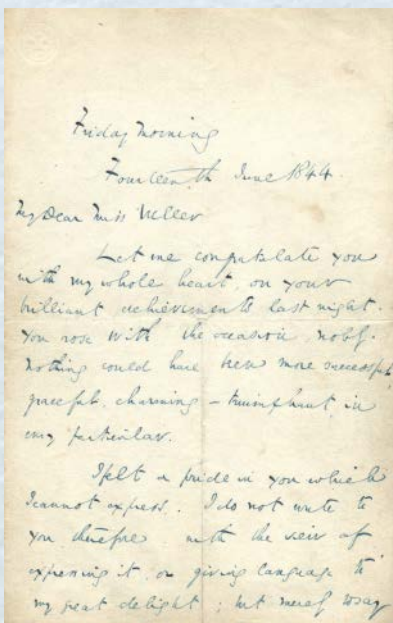 Friday Morning
Fourteenth June 1844.
My Dear Miss Weller
Let me congratulate you
with my whole heart, on your
brilliant achievements last night.
You rose with the occasion, nobly.
Nothing could have been more successful,
graceful, charming – triumphant, in
every particular.
I felt a pride in you which
I cannot express. I do not write to
you therefore with the view of
expressing it, or giving language to
my great delight; but merely to say